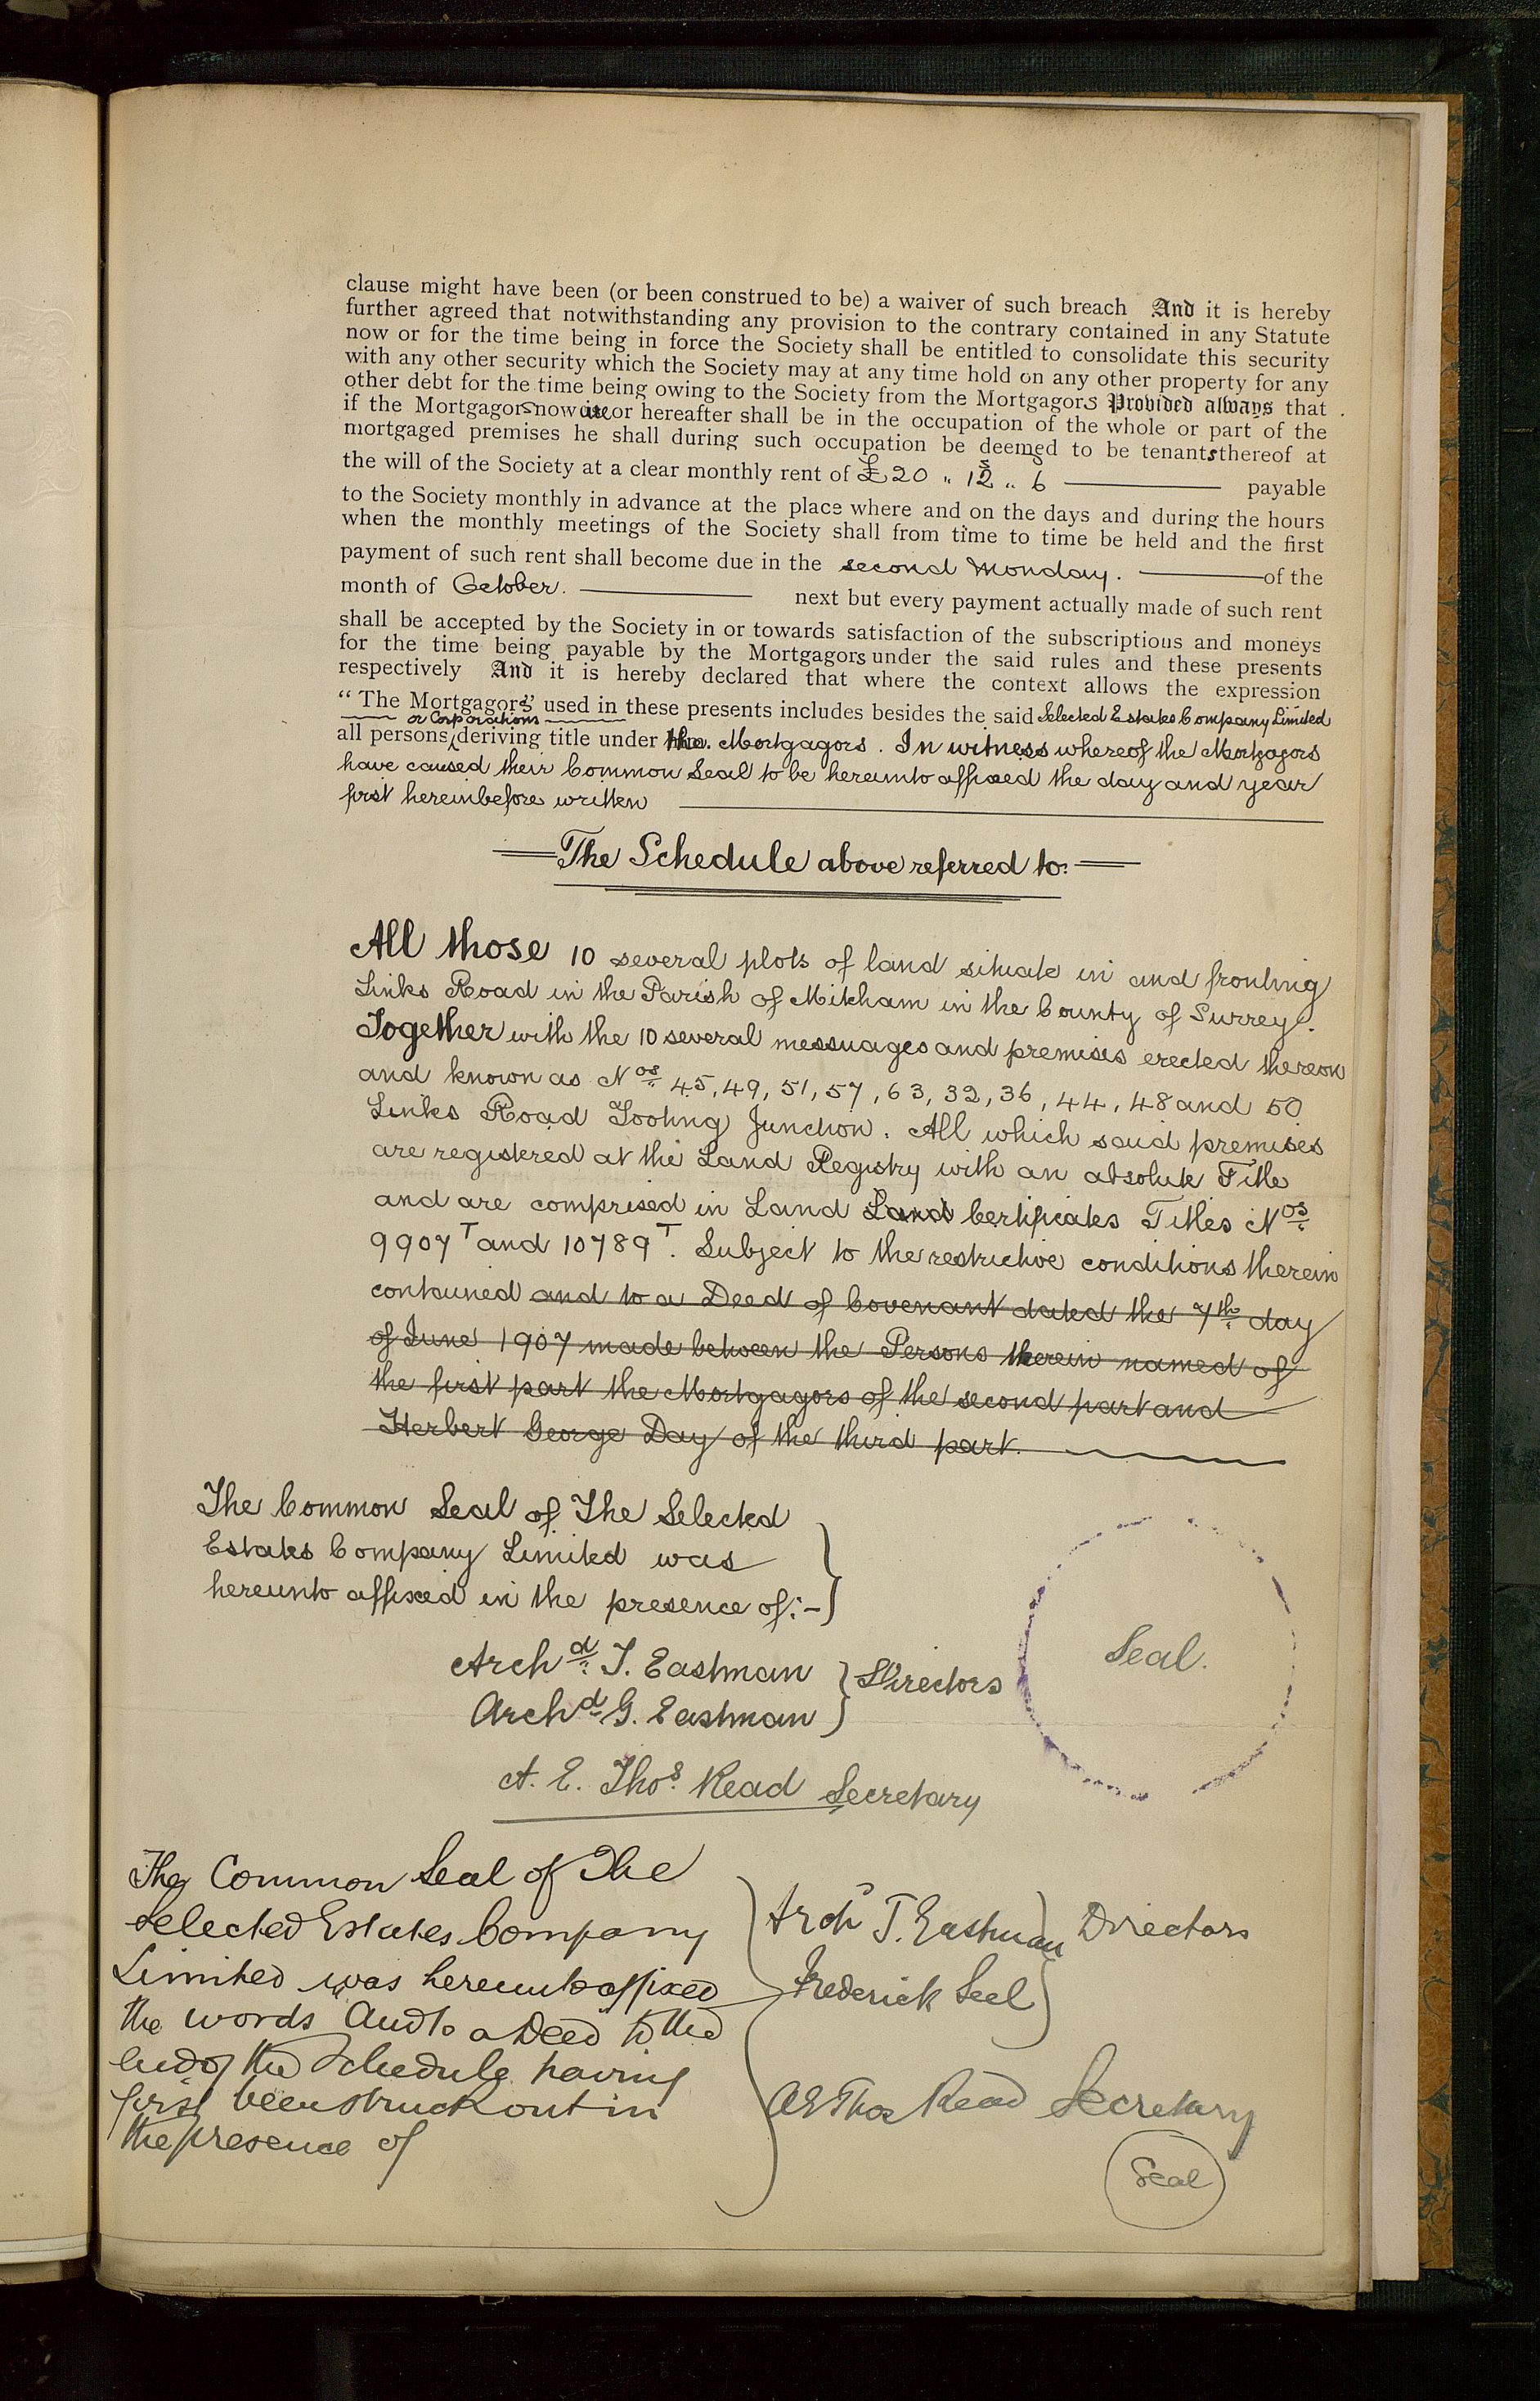 clause might have been (or been construed to be) a waiver of such breach And it is hereby
further agreed that notwithstanding any provision to the contrary contained in any Statute
now or for the time being in force the Society shall be entitled to consolidate this security
with any other security which the Society may at any time hold on any other property for any
other debt for the time being owing to the Society from the Mortgagors Provided always that
if the Mortgagors now are or hereafter shall be in the occupation of the whole or part of the
mortgaged premises he shall during such occupation be deemed to be tenants thereof at
the will of the Society at a clear monthly rent of £20 " 12s " 6d payable
to the Society monthly in advance at the place where and on the days and during the hours
when the monthly meetings of the Society shall from time to time be held and the first
payment of such rent shall become due in the second Monday. of the
month of October. next but every payment actually made of such rent
shall be accepted by the Society in or towards satisfaction of the subscriptions and moneys
for the time being payable by the Mortgagors under the said rules and these presents
respectively And it is hereby declared that where the context allows the expression
"The Mortgagors" used in these presents includes besides the said Selected Estates Company Limited
or Corporations
all persons deriving title under the Mortgagors. In witness whereof the Mortgagors
have caused their Common Seal to be hereunto affixed the day and year
first hereinbefore written
The Schedule above referred to:
All those 10 several plots of land situate in and fronting
Links Road in the Parish of Mitcham in the County of Surrey.
Together with the 10 several messuages and premises erected thereon
and known as Nos. 45, 49, 51, 57, 63, 32, 36, 44, 48 and 50
Links Road Tooting Junction. All which said premises
are registered at the Land Registry with an absolute Title
and are comprised in Land Land Certificates Titles Nos.
9907T and 10789T. Subject to the restrictive conditions therein
contained and to a Deed of Covenant dated the 7th day
of June 1907 made between the Persons therein named of
the first part the Mortgagors of the second part and
Herbert George Day of the third part.
The Common Seal of The Selected
Estates Company Limited was
hereunto affixed in the presence of:-
Archd. T. Eastman
Directors
Archd. G. Eastman
Seal.
A. E. Thos. Read Secretary
The Common Seal of The
Selected Estates Company
Limited was hereunto affixed
the words and to a Deed to the
end of the Schedule having
first been struck out in
the presence of
Archd T. Eastman Directors
Frederick Seel
AE Thos Read Secretary
Seal